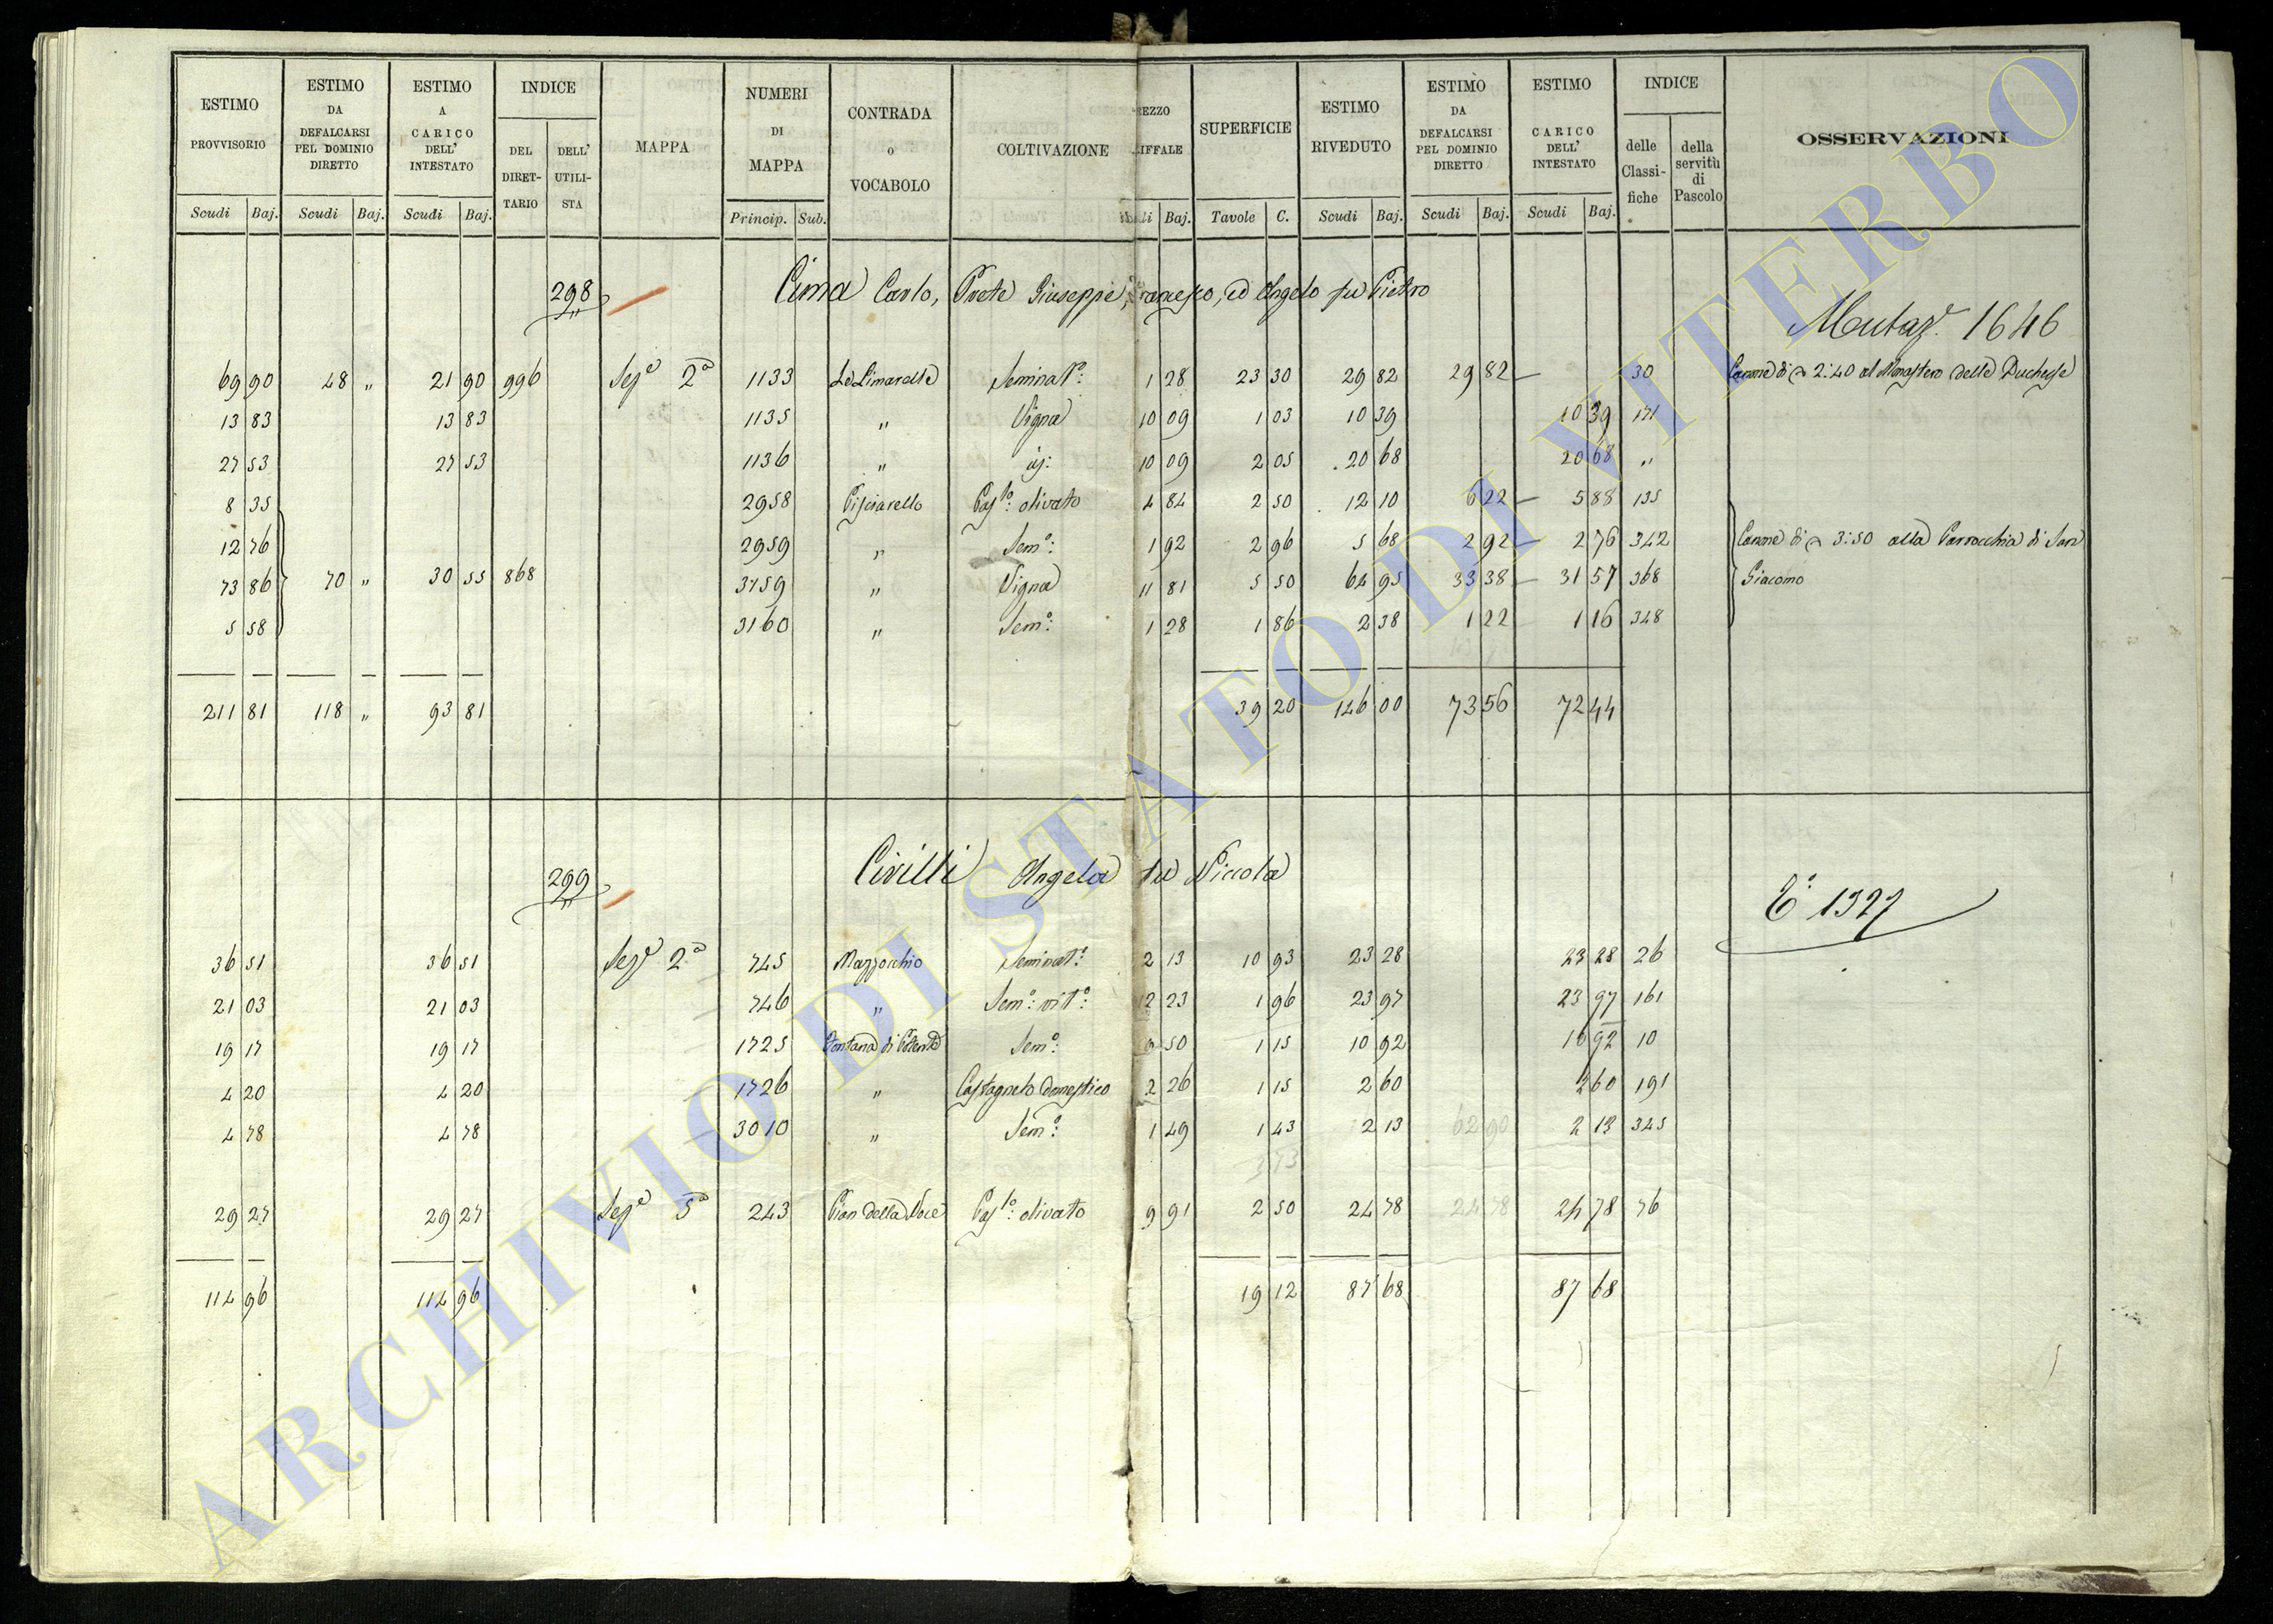 ESTIMO PROVVISORIO | ESTIMO DA DEFALCARSI PEL DOMINIO DIRETTO | ESTIMO A CARICO DELL' INTESTATO | INDICE DEL DIRET-TARIO | DELL' UTILI-STA | MAPPA | NUMERI DI MAPPA | CONTRADA o VOCABOLO | COLTIVAZIONE | REZZO IFFALE | SUPERFICIE | ESTIMO RIVEDUTO | ESTIMO DA DEFALCARSI PEL DOMINIO DIRETTO | ESTIMO A CARICO DELL' INTESTATO | INDICE delle Classi-fiche | della servitù di Pascolo | OSSERVAZIONI
Scudi Baj. | Scudi Baj. | Scudi Baj. | Princip. Sub. | Baj. | Tavole C. | Scudi Baj. | Scudi Baj. | Scudi Baj.
298 Cima Carlo, Prete Giuseppe, ed Angelo fu Pietro
1646
69 90 | 48 " | 21 90 | 996 | Sez.e 2a | 1133 | Seminat.o: | 1 28 | 23 30 | 29 82 | 29 82 — | 30 | Canone di 2:40 al Monastero delle Duchesse
13 83 | 13 83 | 1135 | " | Vigna | 10 09 | 1 03 | 10 39 | 10 39 | 171
27 53 | 27 53 | 1136 | " | 10 09 | 2 05 | 20 68 | 20 68 | "
8 35 | 2958 | Pisciarello | Pas.lo: olivato | 4 84 | 2 50 | 12 10 | 6 22 — | 5 88 | 135
12 76 | 2959 | " | Sem.o: | 1 92 | 2 96 | 5 68 | 2 92 — | 2 76 | 342 | Canone di 3:50 alla Parrocchia di San
73 86 | 70 " | 30 55 | 868 | 3159 | " | Vigna | 11 81 | 5 50 | 64 95 | 33 38 — | 31 57 | 368 | Giacomo
5 58 | 3160 | " | Sem.o: | 1 28 | 1 86 | 2 38 | 1 22 | 1 16 | 348
211 81 | 118 " | 93 81 | 39 20 | 146 00 | 73 56 | 72 44
299 Civilli Angela fu Niccola
1327
36 51 | 36 51 | Sez.e 2a | 745 | Mazzocchio | Seminat.o: | 2 13 | 10 93 | 23 28 | 23 28 | 26
21 03 | 21 03 | 746 | " | Sem.o: vit.o: | 12 23 | 1 96 | 23 97 | 23 97 | 161
19 17 | 19 17 | 1725 | Fontana di | Sem.o: | 9 50 | 1 15 | 10 92 | 10 92 | 10
4 20 | 4 20 | 1726 | " | Castagneto domestico | 2 26 | 1 15 | 2 60 | 2 60 | 191
4 78 | 4 78 | 3010 | " | Sem.o: | 1 49 | 1 43 | 2 13 | 62 90 | 2 13 | 345
29 27 | 29 27 | Sez.e 5a | 243 | Pian della Noce | Pas.lo: olivato | 9 91 | 2 50 | 24 78 | 24 78 | 24 78 | 76
114 96 | 114 96 | 19 12 | 87 68 | 87 68
ARCHIVIO DI STATO DI VITERBO